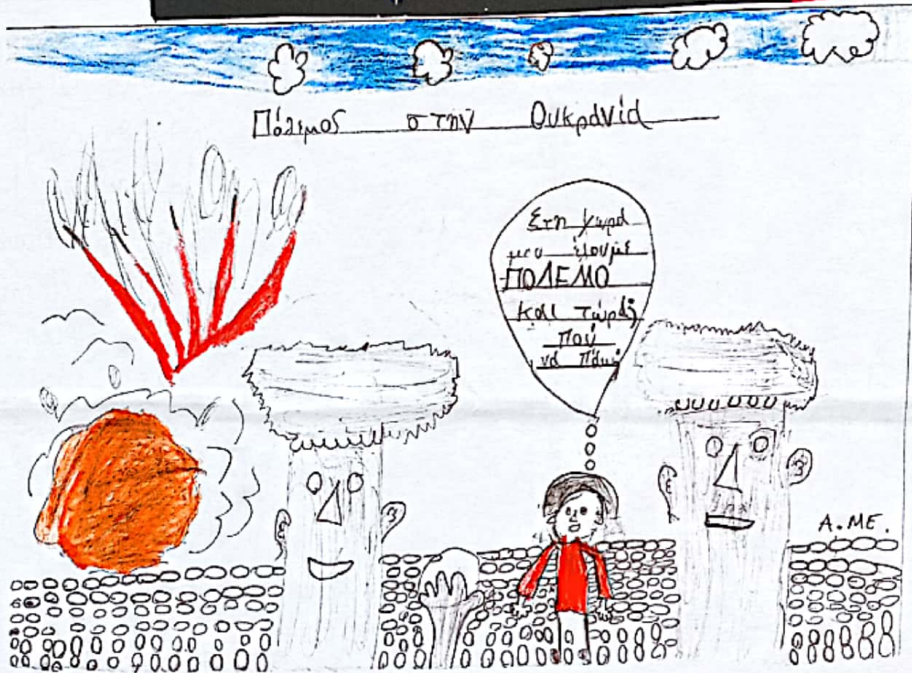 Πόλεμος στην Ουκρανία
Στη χώρα
μου έχουμε
ΠΟΛΕΜΟ
και τώρα
που
να πάω;
A.ME.